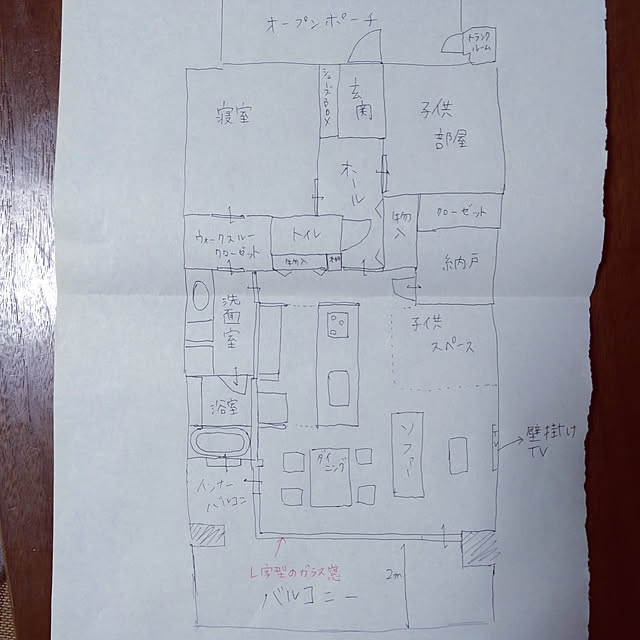 オープンポーチ
トランク
ルーム
シューズBOX
玄関
寝室
子供
部屋
ホール
物入
クローゼット
ウォークスルー
クローゼット
トイレ
物入
納戸
洗面室
子供
スペース
浴室
ダイ
ニング
ソファー
壁掛け
TV
インナー
バルコニ
L字型のガラス窓
2m
バルコニー